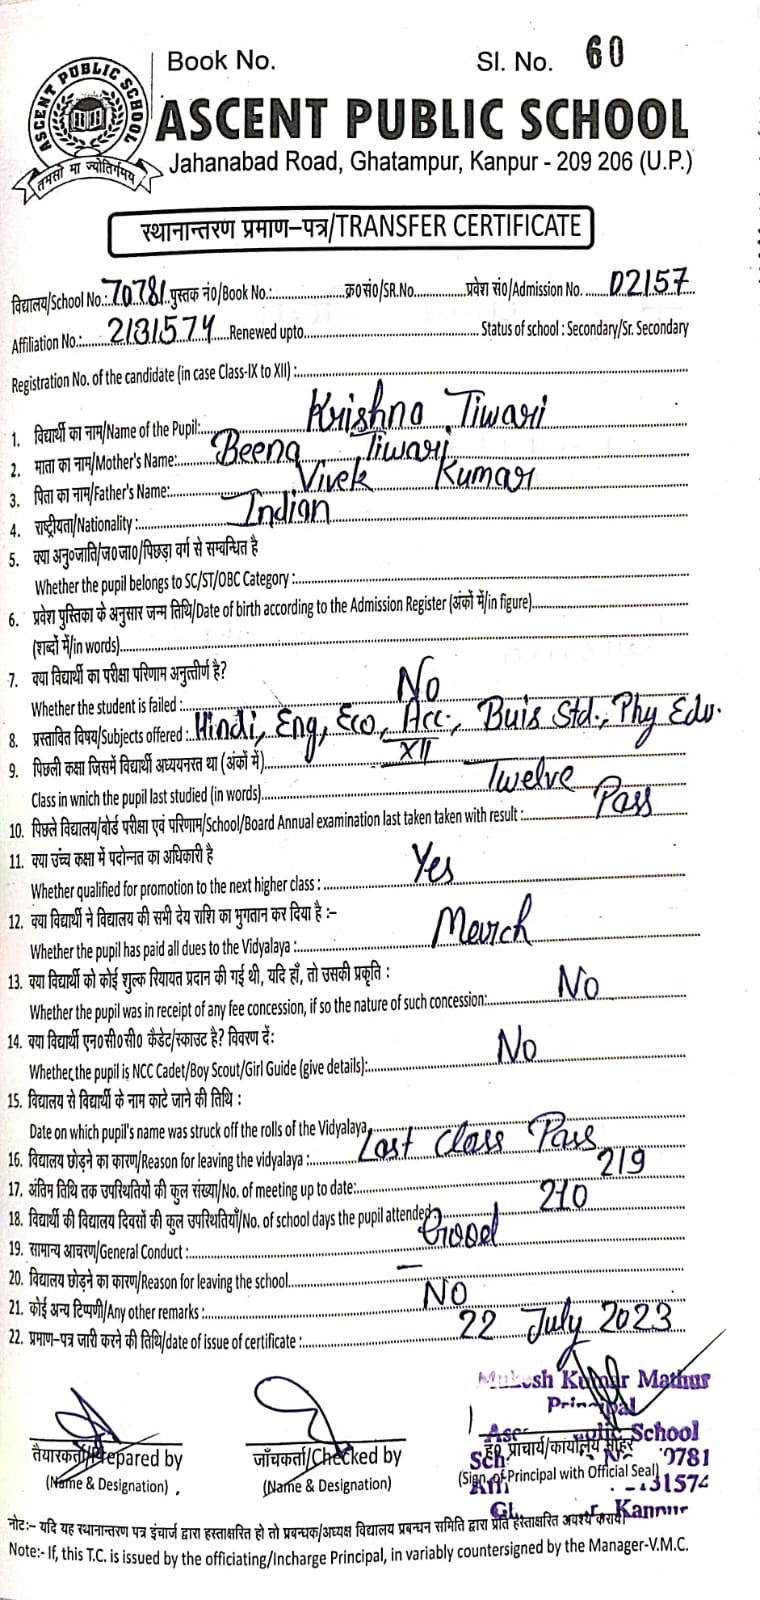 Book No. Sl. No. 60
ASCENT PUBLIC SCHOOL
तमसो मा ज्योतिर्गमय
ASCENT PUBLIC SCHOOL
Jahanabad Road, Ghatampur, Kanpur - 209 206 (U.P.)
स्थानान्तरण प्रमाण-पत्र/TRANSFER CERTIFICATE
विद्यालय/School No.: 70781 पुस्तक नं0/Book No.: क्र0सं0/SR.No. प्रवेश सं0/Admission No. 02157
Affiliation No.: 2131574 Renewed upto Status of school : Secondary/Sr. Secondary
Registration No. of the candidate (in case Class-IX to XII) :
1. विद्यार्थी का नाम/Name of the Pupil: Krishna Tiwari
2. माता का नाम/Mother's Name: Beena Tiwari
3. पिता का नाम/Father's Name: Vivek Kumar
4. राष्ट्रीयता/Nationality : Indian
5. क्या अनु0जाति/ज0जा0/पिछड़ा वर्ग से सम्बन्धित है
Whether the pupil belongs to SC/ST/OBC Category :
6. प्रवेश पुस्तिका के अनुसार जन्म तिथि/Date of birth according to the Admission Register (अंकों में/in figure)
(शब्दों में/in words)
7. क्या विद्यार्थी का परीक्षा परिणाम अनुत्तीर्ण है?
Whether the student is failed : No
8. प्रस्तावित विषय/Subjects offered : Hindi, Eng, Eco, Acc., Buis Std., Phy Edu.
9. पिछली कक्षा जिसमें विद्यार्थी अध्ययनरत था (अंकों में) XII
Class in wnich the pupil last studied (in words) Twelve
10. पिछले विद्यालय/बोर्ड परीक्षा एवं परिणाम/School/Board Annual examination last taken taken with result : Pass
11. क्या उच्च कक्षा में पदोन्नत का अधिकारी है
Whether qualified for promotion to the next higher class : Yes
12. क्या विद्यार्थी ने विद्यालय की सभी देय राशि का भुगतान कर दिया है :-
Whether the pupil has paid all dues to the Vidyalaya : March
13. क्या विद्यार्थी को कोई शुल्क रियायत प्रदान की गई थी, यदि हाँ, तो उसकी प्रकृति :
Whether the pupil was in receipt of any fee concession, if so the nature of such concession: No
14. क्या विद्यार्थी एन0सी0सी0 कैडेट/स्काउट है? विवरण दें:
Whether the pupil is NCC Cadet/Boy Scout/Girl Guide (give details): No
15. विद्यालय से विद्यार्थी के नाम काटे जाने की तिथि :
Date on which pupil's name was struck off the rolls of the Vidyalaya
16. विद्यालय छोड़ने का कारण/Reason for leaving the vidyalaya : Last Class Pass
17. अंतिम तिथि तक उपस्थितियों की कुल संख्या/No. of meeting up to date: 219
18. विद्यार्थी की विद्यालय दिवसों की कुल उपस्थितियाँ/No. of school days the pupil attended 210
19. सामान्य आचरण/General Conduct : Good
20. विद्यालय छोड़ने का कारण/Reason for leaving the school –
21. कोई अन्य टिप्पणी/Any other remarks : NO
22. प्रमाण-पत्र जारी करने की तिथि/date of issue of certificate : 22 July 2023
Mukesh Kumar Mathur
Principal
Public School
0781
31574
Kanpur
तैयारकर्ता/Prepared by जाँचकर्ता/Checked by ह0 प्राचार्य/कार्यालय मोहर
(Name & Designation) (Name & Designation) (Sign. of Principal with Official Seal)
नोट:- यदि यह स्थानान्तरण पत्र इंचार्ज द्वारा हस्ताक्षरित हो तो प्रबन्धक/अध्यक्ष विद्यालय प्रबन्धन समिति द्वारा प्रति हस्ताक्षरित अवश्य करायें।
Note:- If, this T.C. is issued by the officiating/Incharge Principal, in variably countersigned by the Manager-V.M.C.